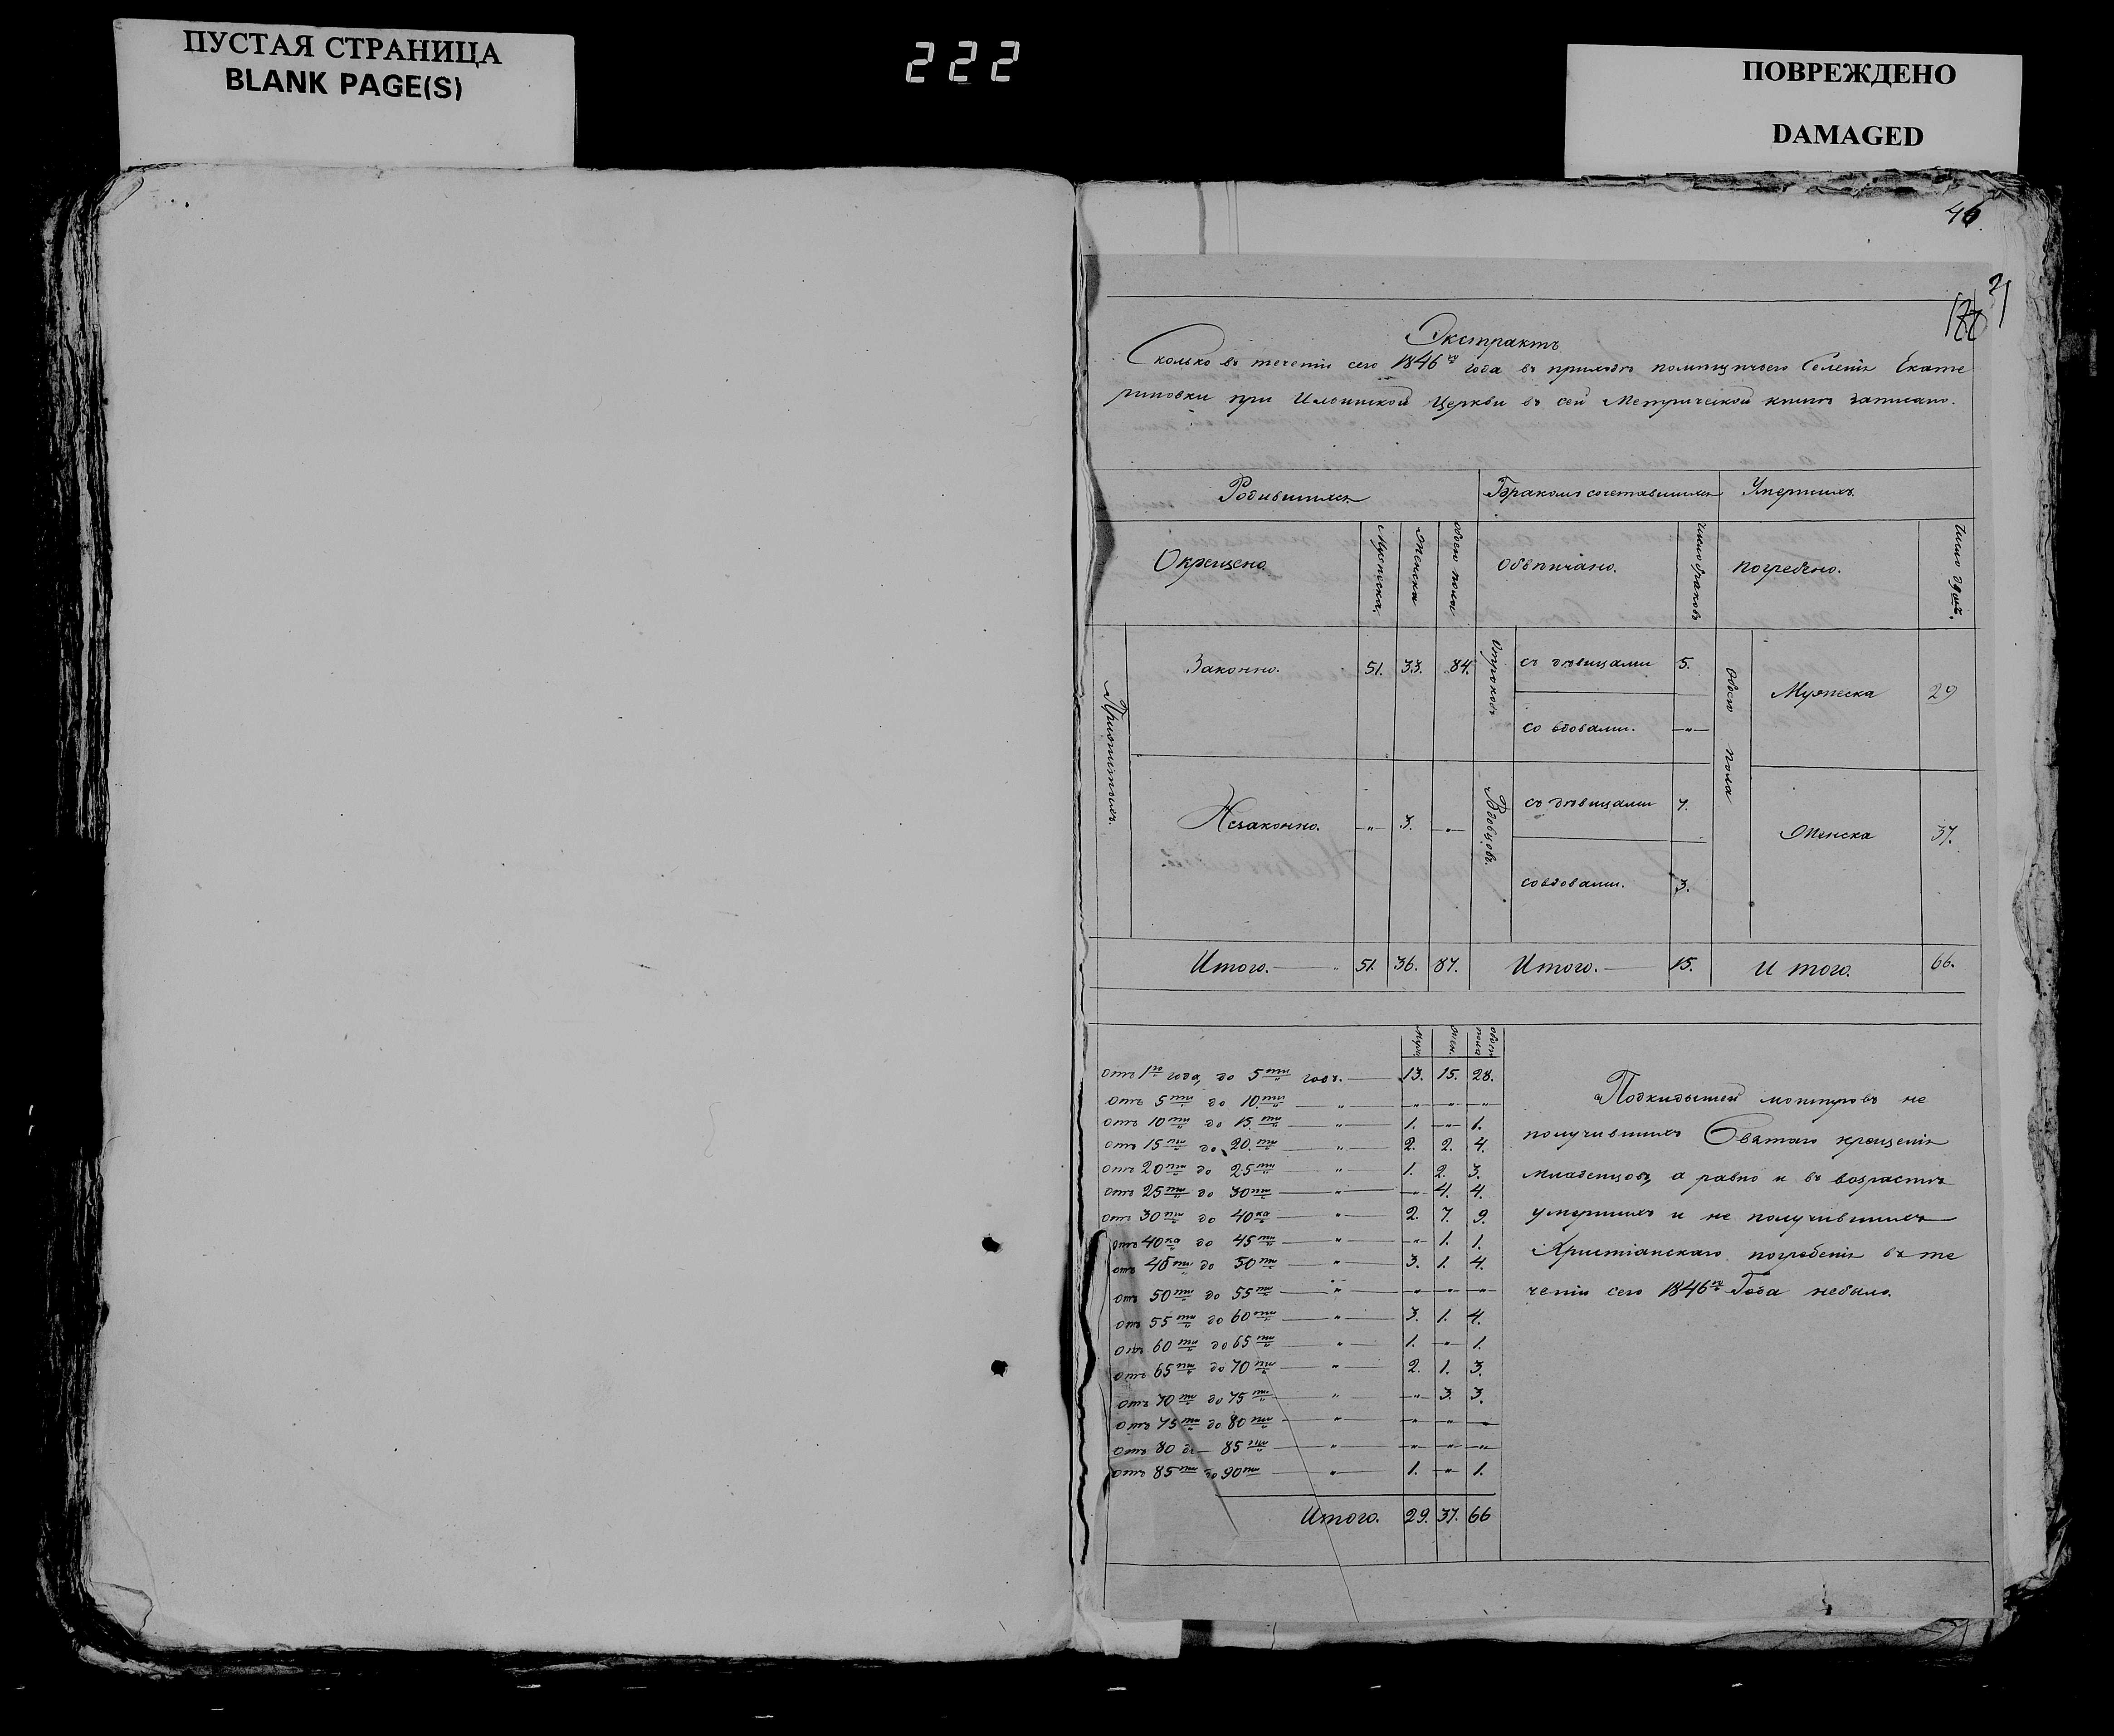 ПУСТАЯ СТРАНИЦА
BLANK PAGE(S)
222
ПОВРЕЖДЕНО
DAMAGED
46.
Экстрактъ
Сколько въ теченіи сего 1846го года въ приходѣ помѣщичьего Селенія Екате
риновки при Церкви въ сей Метрической книгѣ записано.
Родившихся Бракомъ сочетавшихся Умершихъ.
Окрещено Мужеска Женска обоего пола Обвѣнчано. Число браковъ погребено. Число душъ.
Прижитыхъ. Законно. 51. 33. 84. Отроковъ съ дѣвицами 5. Обоего пола Мужеска 29
со вдовами. —„—
Незаконно. —„— 3. —„— Вдовцовъ. съ дѣвицами 7. Женска 37.
со вдовами. 3.
Итого. 51. 36. 87. Итого. 15. Итого. 66.
Муж. Жен. обоего пола
отъ 1го года, до 5ти годъ. 13. 15. 28.
отъ 5ти до 10ти „ —„— —„— —„—
отъ 10ти до 15ти „ 1. —„— 1.
отъ 15ти до 20ти „ 2. 2. 4.
отъ 20ти до 25ти „ 1. 2. 3.
отъ 25ти до 30ти „ —„— 4. 4.
отъ 30ти до 40ка „ 2. 7. 9.
отъ 40ка до 45ти „ —„— 1. 1.
отъ 45ти до 50ти „ 3. 1. 4.
отъ 50ти до 55ти „ —„— —„— —„—
отъ 55ти до 60ти „ 3. 1. 4.
отъ 60ти до 65ти „ 1. —„— 1.
отъ 65ти до 70ти „ 2. 1. 3.
отъ 70ти до 75ти „ —„— 3. 3.
отъ 75ти до 80ти „ —„— —„— —„—
отъ 80 до 85ти „ —„— —„— —„—
отъ 85ти до 90ти „ 1. —„— 1.
Итого. 29. 37. 66
Подкидышей не
получившихъ Святаго крещенія
младенцовъ, а равно и въ возрастѣ
умершихъ и не получившихъ
Христіанскаго погребенія въ те
ченіи сего 1846го Года небыло.